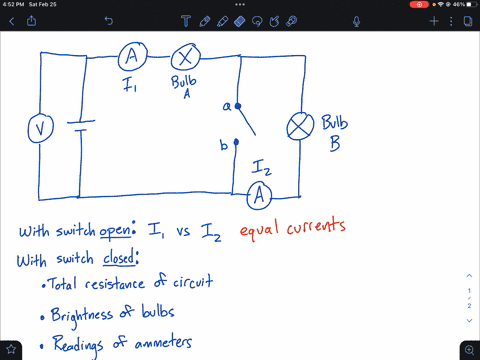 4:52 PM Sat Feb 25
46%
A
I₁
Bulb
A
a
b
V
Bulb
B
I₂
A
With switch open: I₁ vs I₂ equal currents
With switch closed:
• Total resistance of circuit
• Brightness of bulbs
• Readings of ammeters
1
2